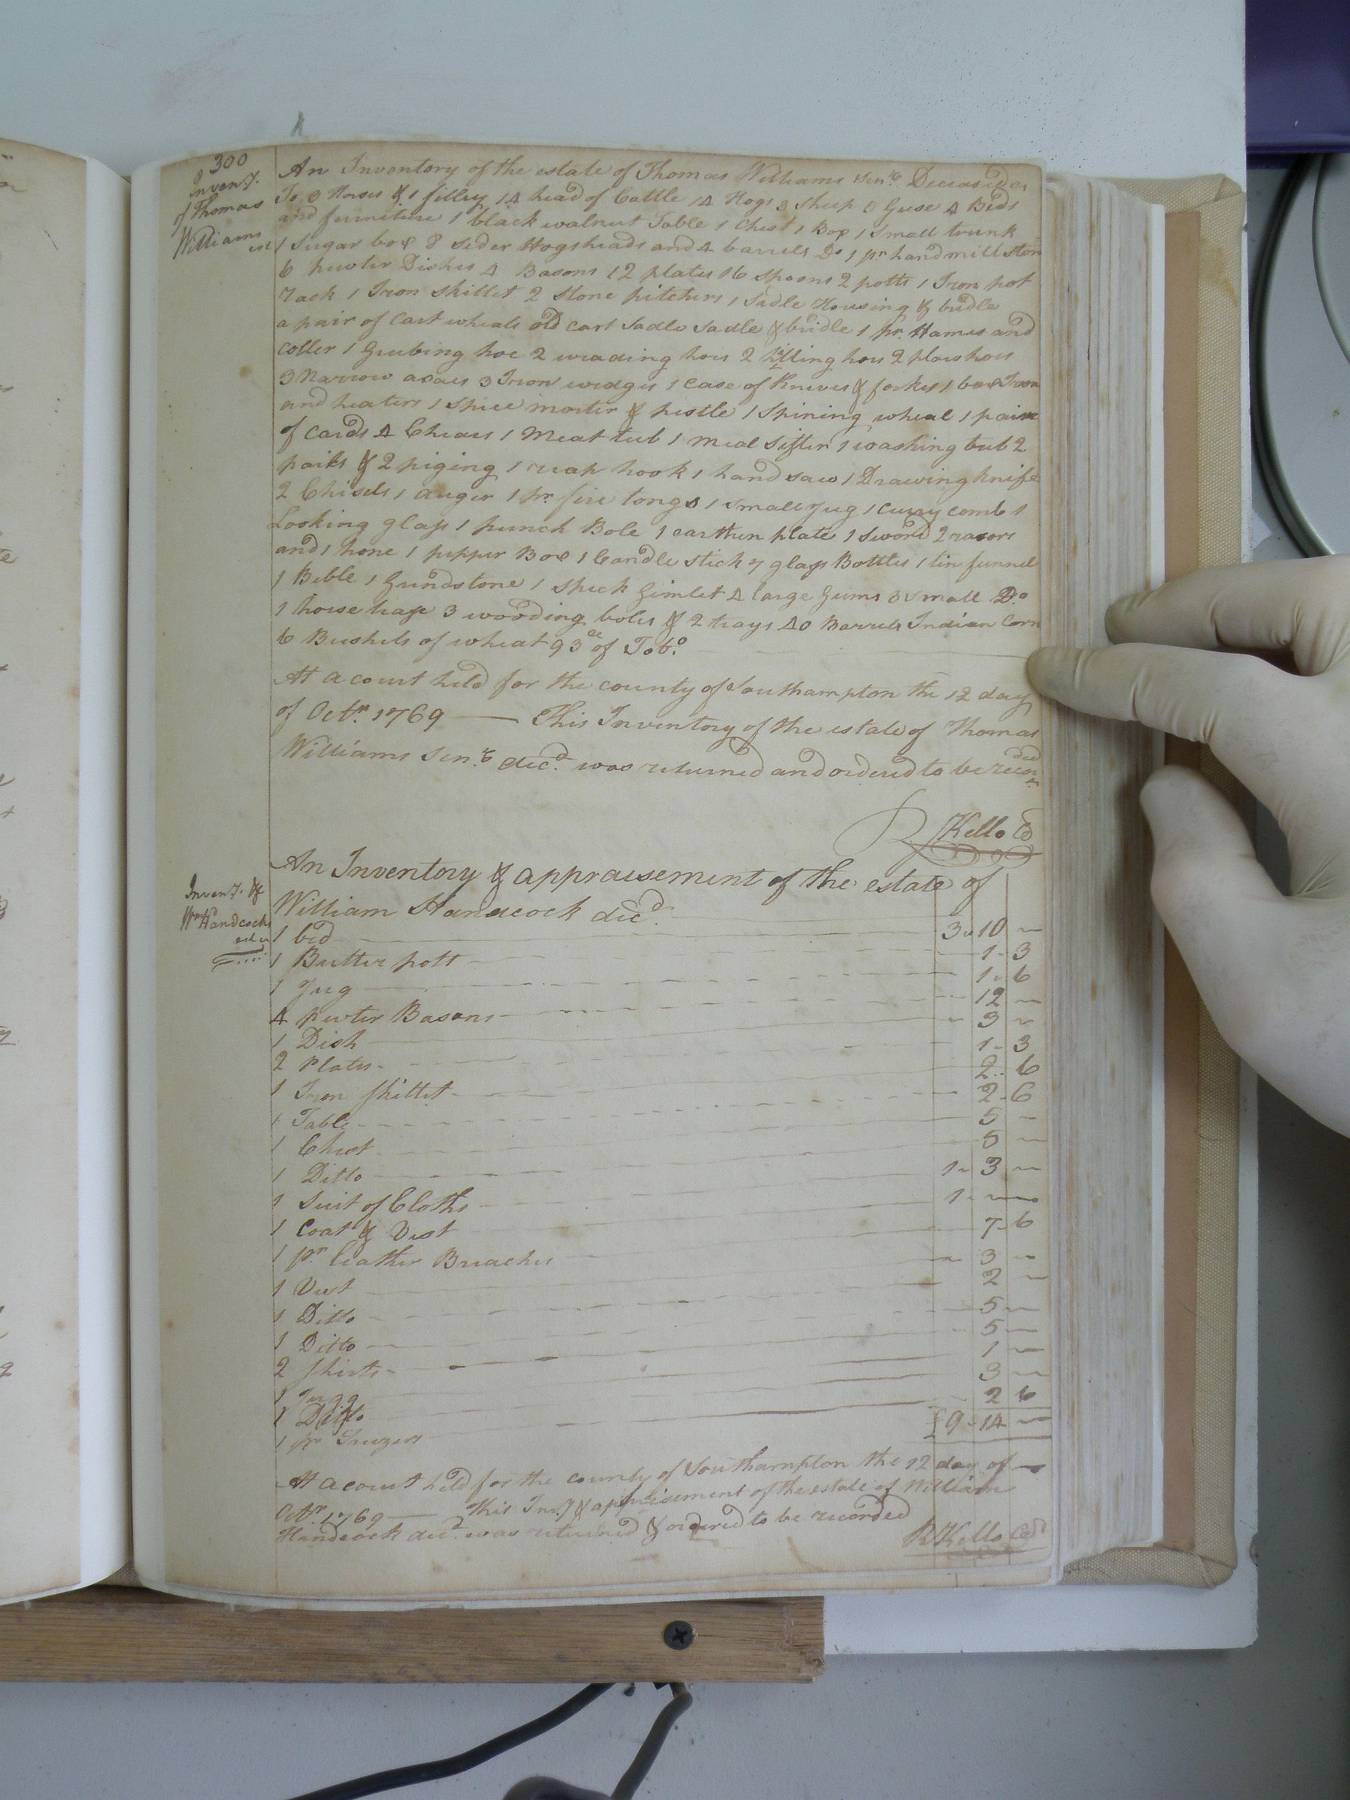 300
Inven.y
of Thomas
Williams
An Inventory of the estate of Thomas Williams Sen.r Deceased as
To 8 Horses & 1 filley 14 head of Cattle 14 Hogs 9 Sheep 8 Geese 4 Beds
and furniture 1 black walnut Table 1 Chest 1 Box 1 small trunk
1 Sugar box 8 sider Hogsheads and 4 barrels Do 1 pr hand mill ston
6 pewter Dishes 4 Basons 12 plates 16 spoons 2 potts 1 Iron pot
rack 1 Iron skillet 2 stone pitchers 1 Sadle Housing & bridle
a pair of Cart wheals old cart Sadle Sadle & bridle 1 pr. Hames and
Coller 1 Grubing hoe 2 weading hoes 2 hilling hoes 2 plow hoes
3 Narrow axais 3 Iron wedges 1 case of Knives & forkes 1 box Iron
and heaters 1 Spice morter & pestle 1 Spining wheal 1 pair
of Cards 4 Chears 1 Meat tub 1 meal Sifter 1 washing tub 2
pails & 2 piging 1 reap hook 1 hand saw 1 Drawing knife
2 Chisels 1 auger 1 pr. fire tongs 1 small Jug 1 Curry comb 1
Looking glass 1 punch Bole 1 earthen plate 1 sword 2 rasors
and 1 hone 1 pepper Box 1 Candle stick 7 glass Bottles 1 tin funnel
1 Bible 1 Grindstone 1 Speck Gimlet 4 large Gums 8 small Do
1 horse 3 wooding boles & 2 trays 40 Barrels Indian Corn
6 Bushels of wheat 93 of Tob.o
At a court held for the county of Southampton the 12 day
of Octr. 1769 — This Inventory of the estate of Thomas
Williams Sen.r dec.d was returned and ordered to be recor
ded
R Kello Co
Inven.y &
Wm Handcock
An Inventory & appraisement of the estate of
William Handcock dec.d
1 bed 3 " 10 —
1 Butter pott 1 - 3
1 Jug 1 - 6
4 pewter Basons 12 —
1 Dish 3 —
2 Plates 1 - 3
1 Iron skillet 2 - 6
1 Table 2 - 6
1 Chest 5 —
1 Ditto 5 —
1 Suit of Cloths 1 - 3 —
1 Coat & Vest 1 - —
1 pr leather Breaches 7 - 6
1 Vest 3 —
1 Ditto 2 —
1 Ditto 5 —
2 Shirts 5 —
1 1 —
1 Ditto 3 —
1 pr 2 6
£ 9 - 14 —
At a court held for the county of Southampton the 12 day of
Octr. 1769 — This Inv.y & appraisement of the estate of William
Handcock dec.d was returned & ordered to be recorded
R Kello